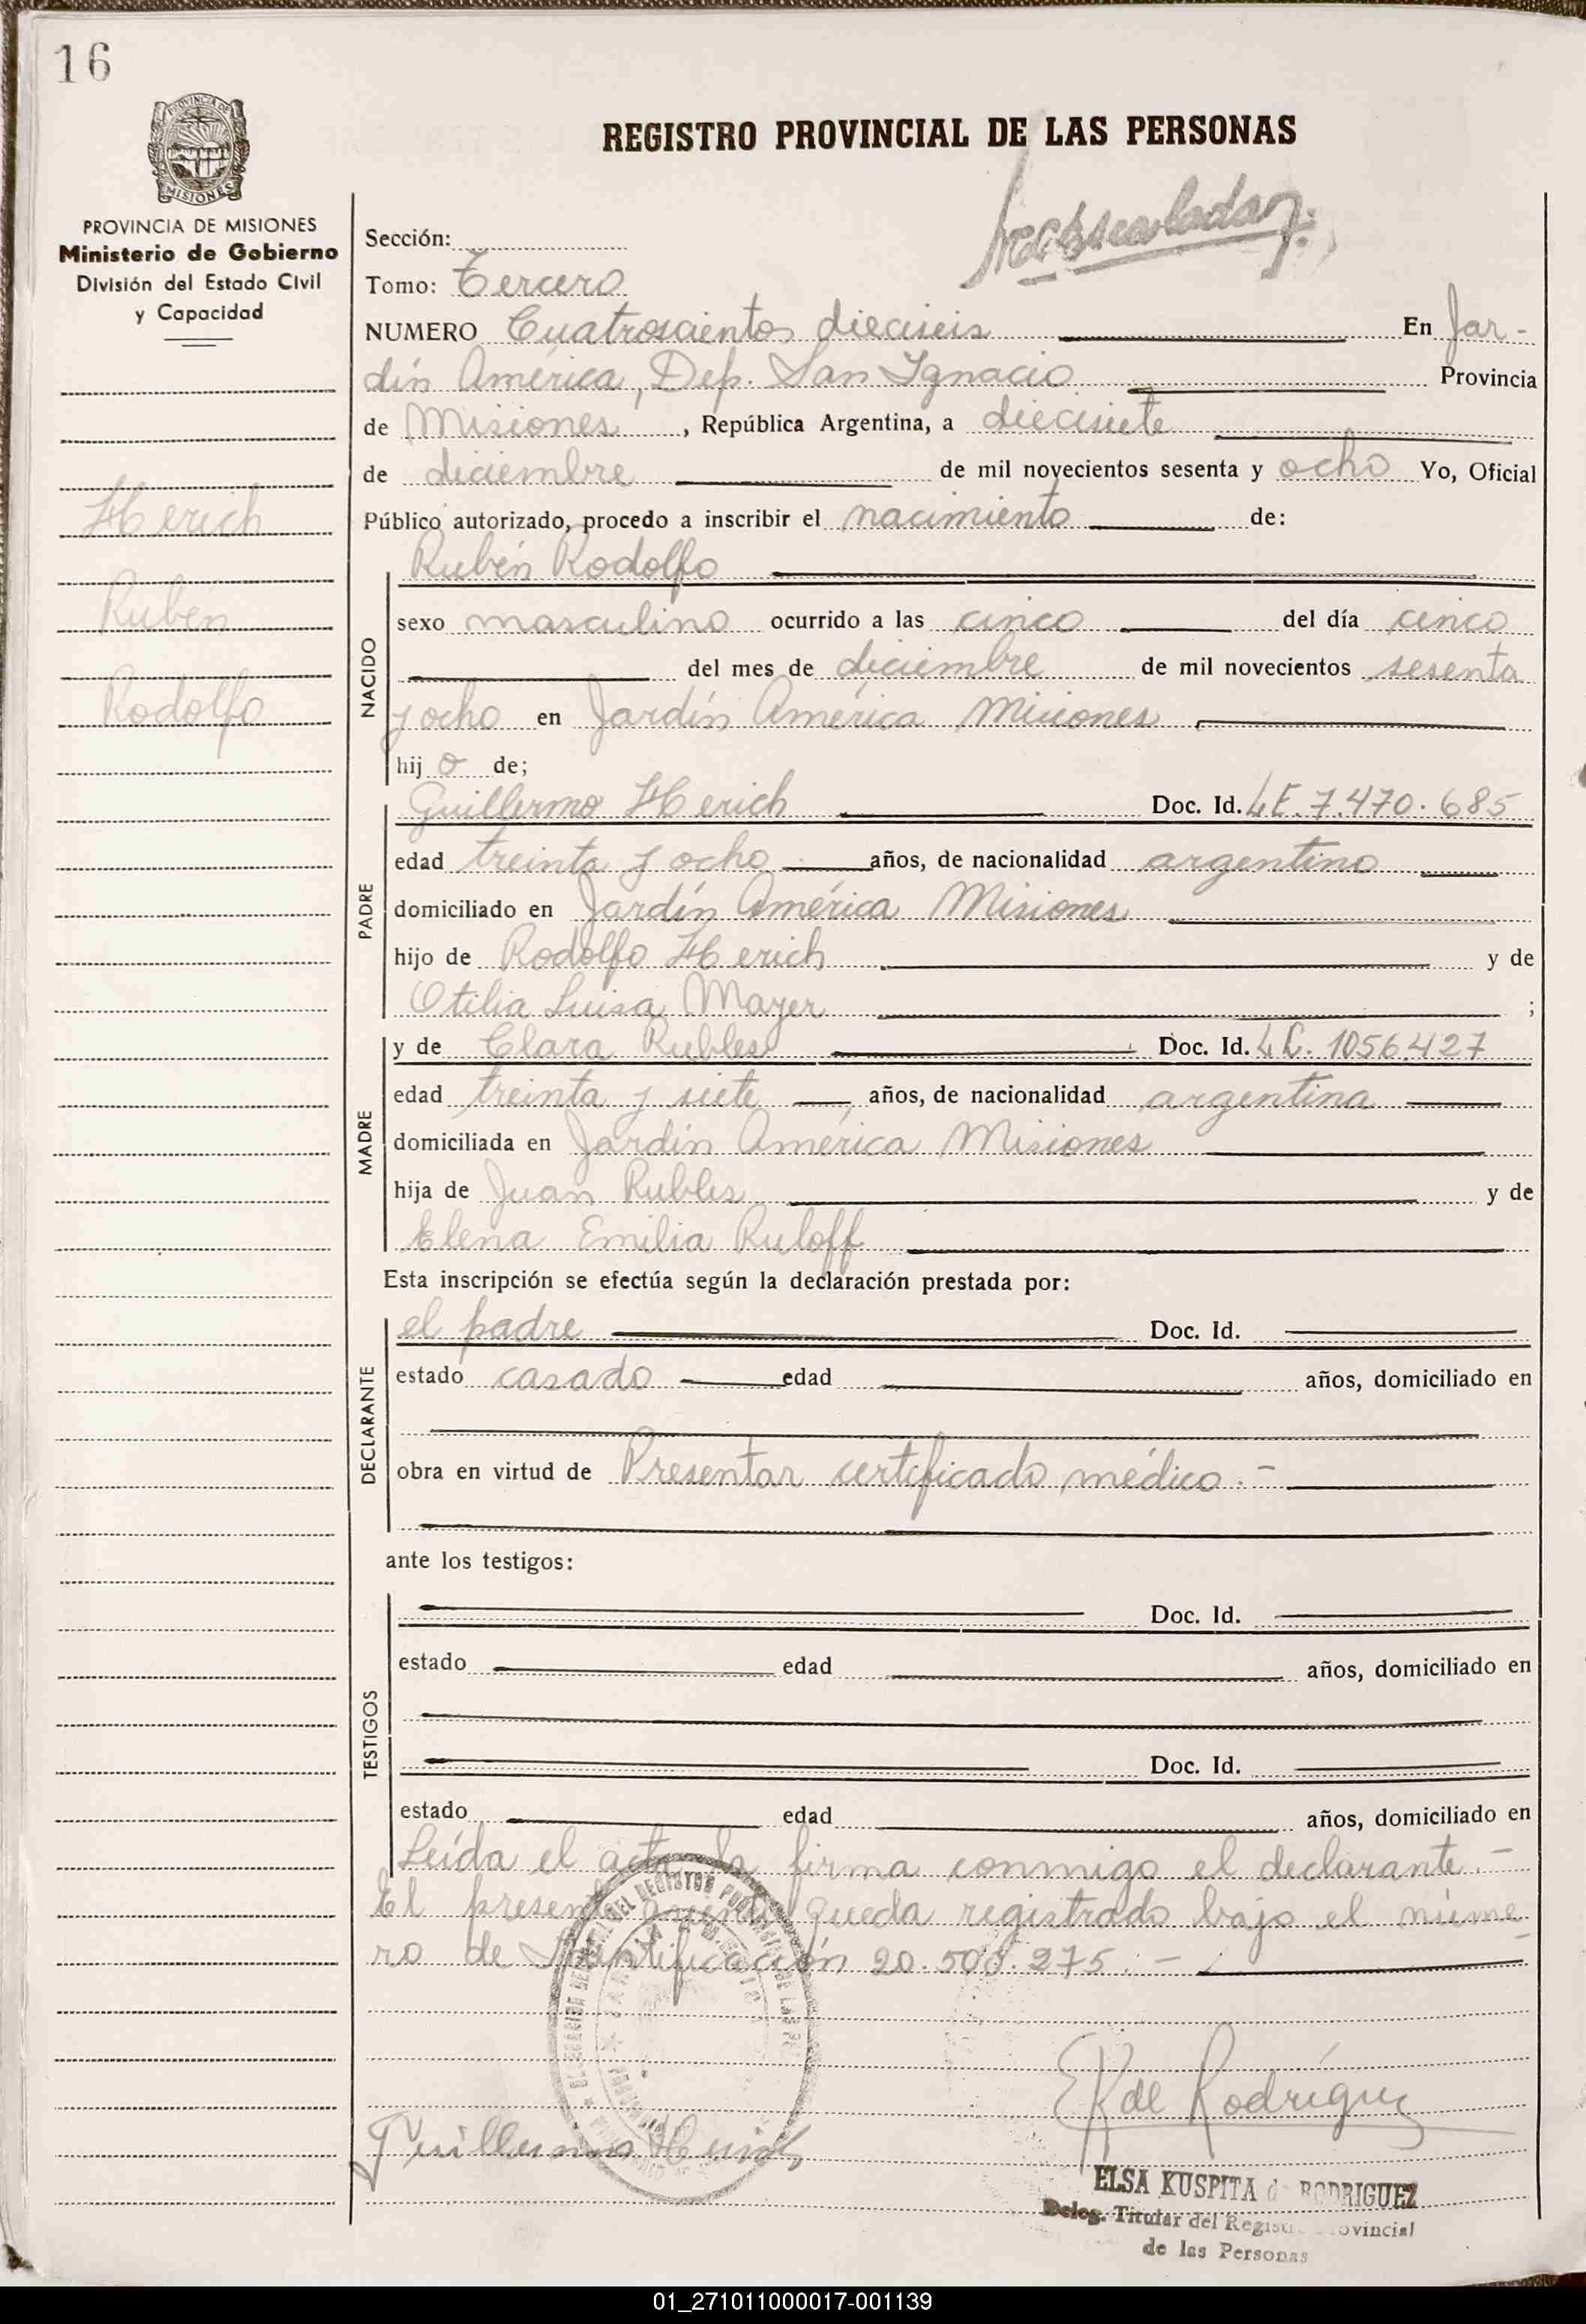 16
PROVINCIA DE
MISIONES
REGISTRO PROVINCIAL DE LAS PERSONAS
PROVINCIA DE MISIONES
Ministerio de Gobierno
División del Estado Civil
y Capacidad
Herich
Rubén
Rodolfo
Sección:
Tomo: Tercero
NUMERO Cuatroscientos dieciseis En Jar-
dín América, Dep. San Ignacio Provincia
de Misiones, República Argentina, a diecisiete
de diciembre de mil novecientos sesenta y ocho Yo, Oficial
Público autorizado, procedo a inscribir el nacimiento de:
Rubén Rodolfo
NACIDO
sexo masculino ocurrido a las cinco del día cinco
del mes de diciembre de mil novecientos sesenta
y ocho en Jardín América Misiones
hijo de;
PADRE
Guillermo Herich Doc. Id. L.E. 7.470.685
edad treinta y ocho años, de nacionalidad argentino
domiciliado en Jardín América Misiones
hijo de Rodolfo Herich y de
Otilia Luisa Mayer ;
MADRE
y de Clara Rubles Doc. Id. L.C. 1056.427
edad treinta y siete años, de nacionalidad argentina
domiciliada en Jardín América Misiones
hija de Juan Rubles y de
Elena Emilia Ruloff
Esta inscripción se efectúa según la declaración prestada por:
DECLARANTE
el padre Doc. Id.
estado casado edad años, domiciliado en
obra en virtud de Presentar certificado médico.-
ante los testigos:
TESTIGOS
Doc. Id.
estado edad años, domiciliado en
Doc. Id.
estado edad años, domiciliado en
Leída el acta la firma conmigo el declarante.-
El presente queda registrado bajo el núme-
ro de Identificación 20.508.275.-
Guillermo Herich
EK de Rodríguez
ELSA KUSPITA de RODRIGUEZ
Deleg. Titular del Registro Provincial
de las Personas
01_271011000017-001139